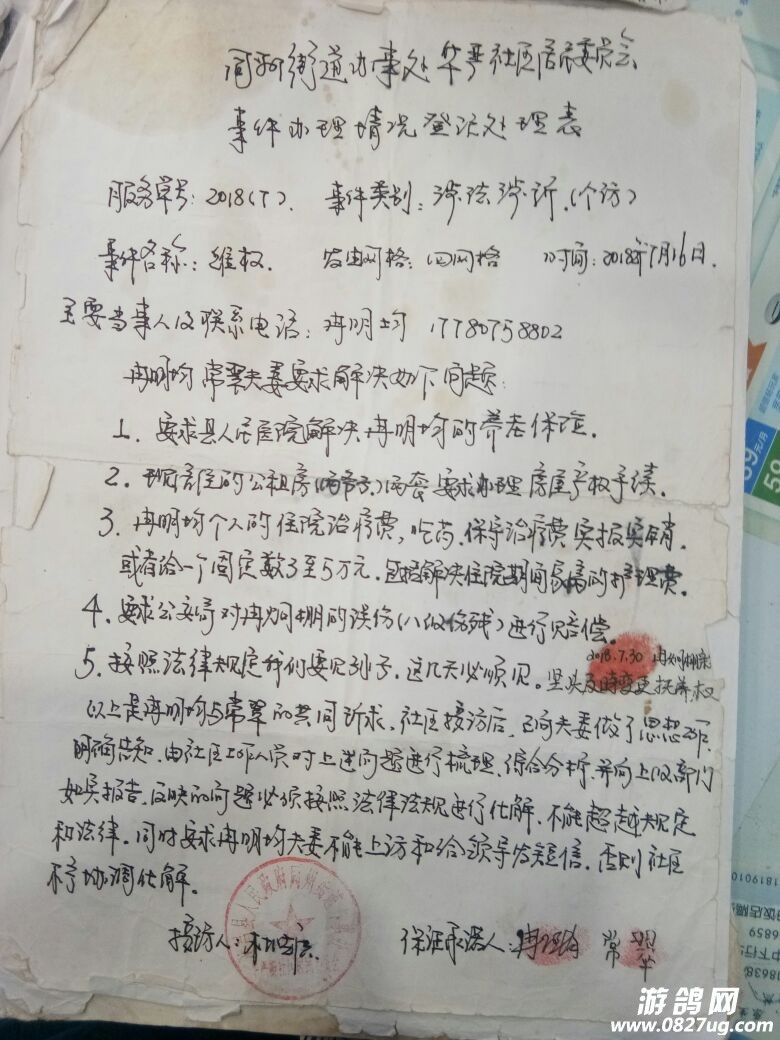 同州街道办事处华严社区居民委员会
事件办理情况登记处理表
服务单号:2018(7). 事件类别:涉法涉诉.(个访)
事件名称:维权. 发生网格:四网格 时间:2018年7月16日.
主要当事人及联系电话:冉明均 17780758802
冉明均 常翠夫妻要求解决如下问题:
1. 要求县人民医院解决冉明均的养老保险.
2. 现居住的公租房(两节子)两套要求办理房屋产权手续.
3. 冉明均个人的住院治疗费,吃药.保守治疗费实报实销.
或者给一个固定数3至5万元.包括解决住院期间家属的护理费.
4. 要求公安局对冉炯棚的误伤(八级伤残)进行赔偿.
2018.7.30
5. 按照法律规定我们要见孙子.这几天必须见.坚决及時变更抚养权
以上是冉明均与常翠的共同诉求.社区接访后.已向夫妻做了思想工作.
明确告知.由社区工作人员对上述问题进行梳理.综合分析.并向上级部门
如实报告.反映的问题必须按照法律法规进行化解.不能超越规定
和法律.同时要求冉明均夫妻不能上访和给领导发短信.否则社区
不予协调化解.
接访人: 保证承诺人:冉明均 常翠
游鸽网
www.0827ug.com